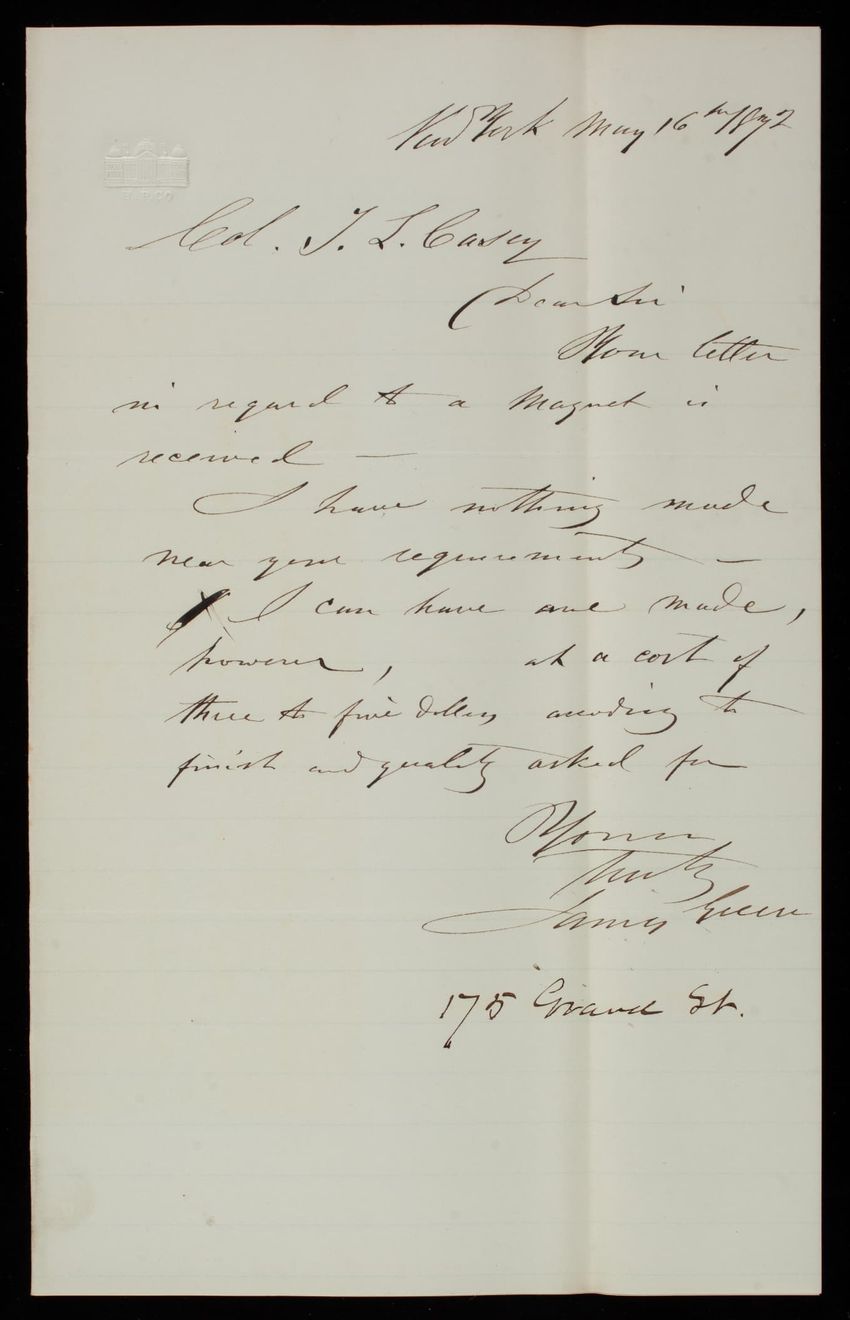 New York May 16th 1872
Col. T. L. Casey
Dear Sir
Your letter
in regard to a Magnet is
received —
I have nothing made
near your requirements —
I can have one made,
however, at a cost of
three to five dollars according to
finish and quality asked for
Yours
Truly
James Green
175 Grand St.